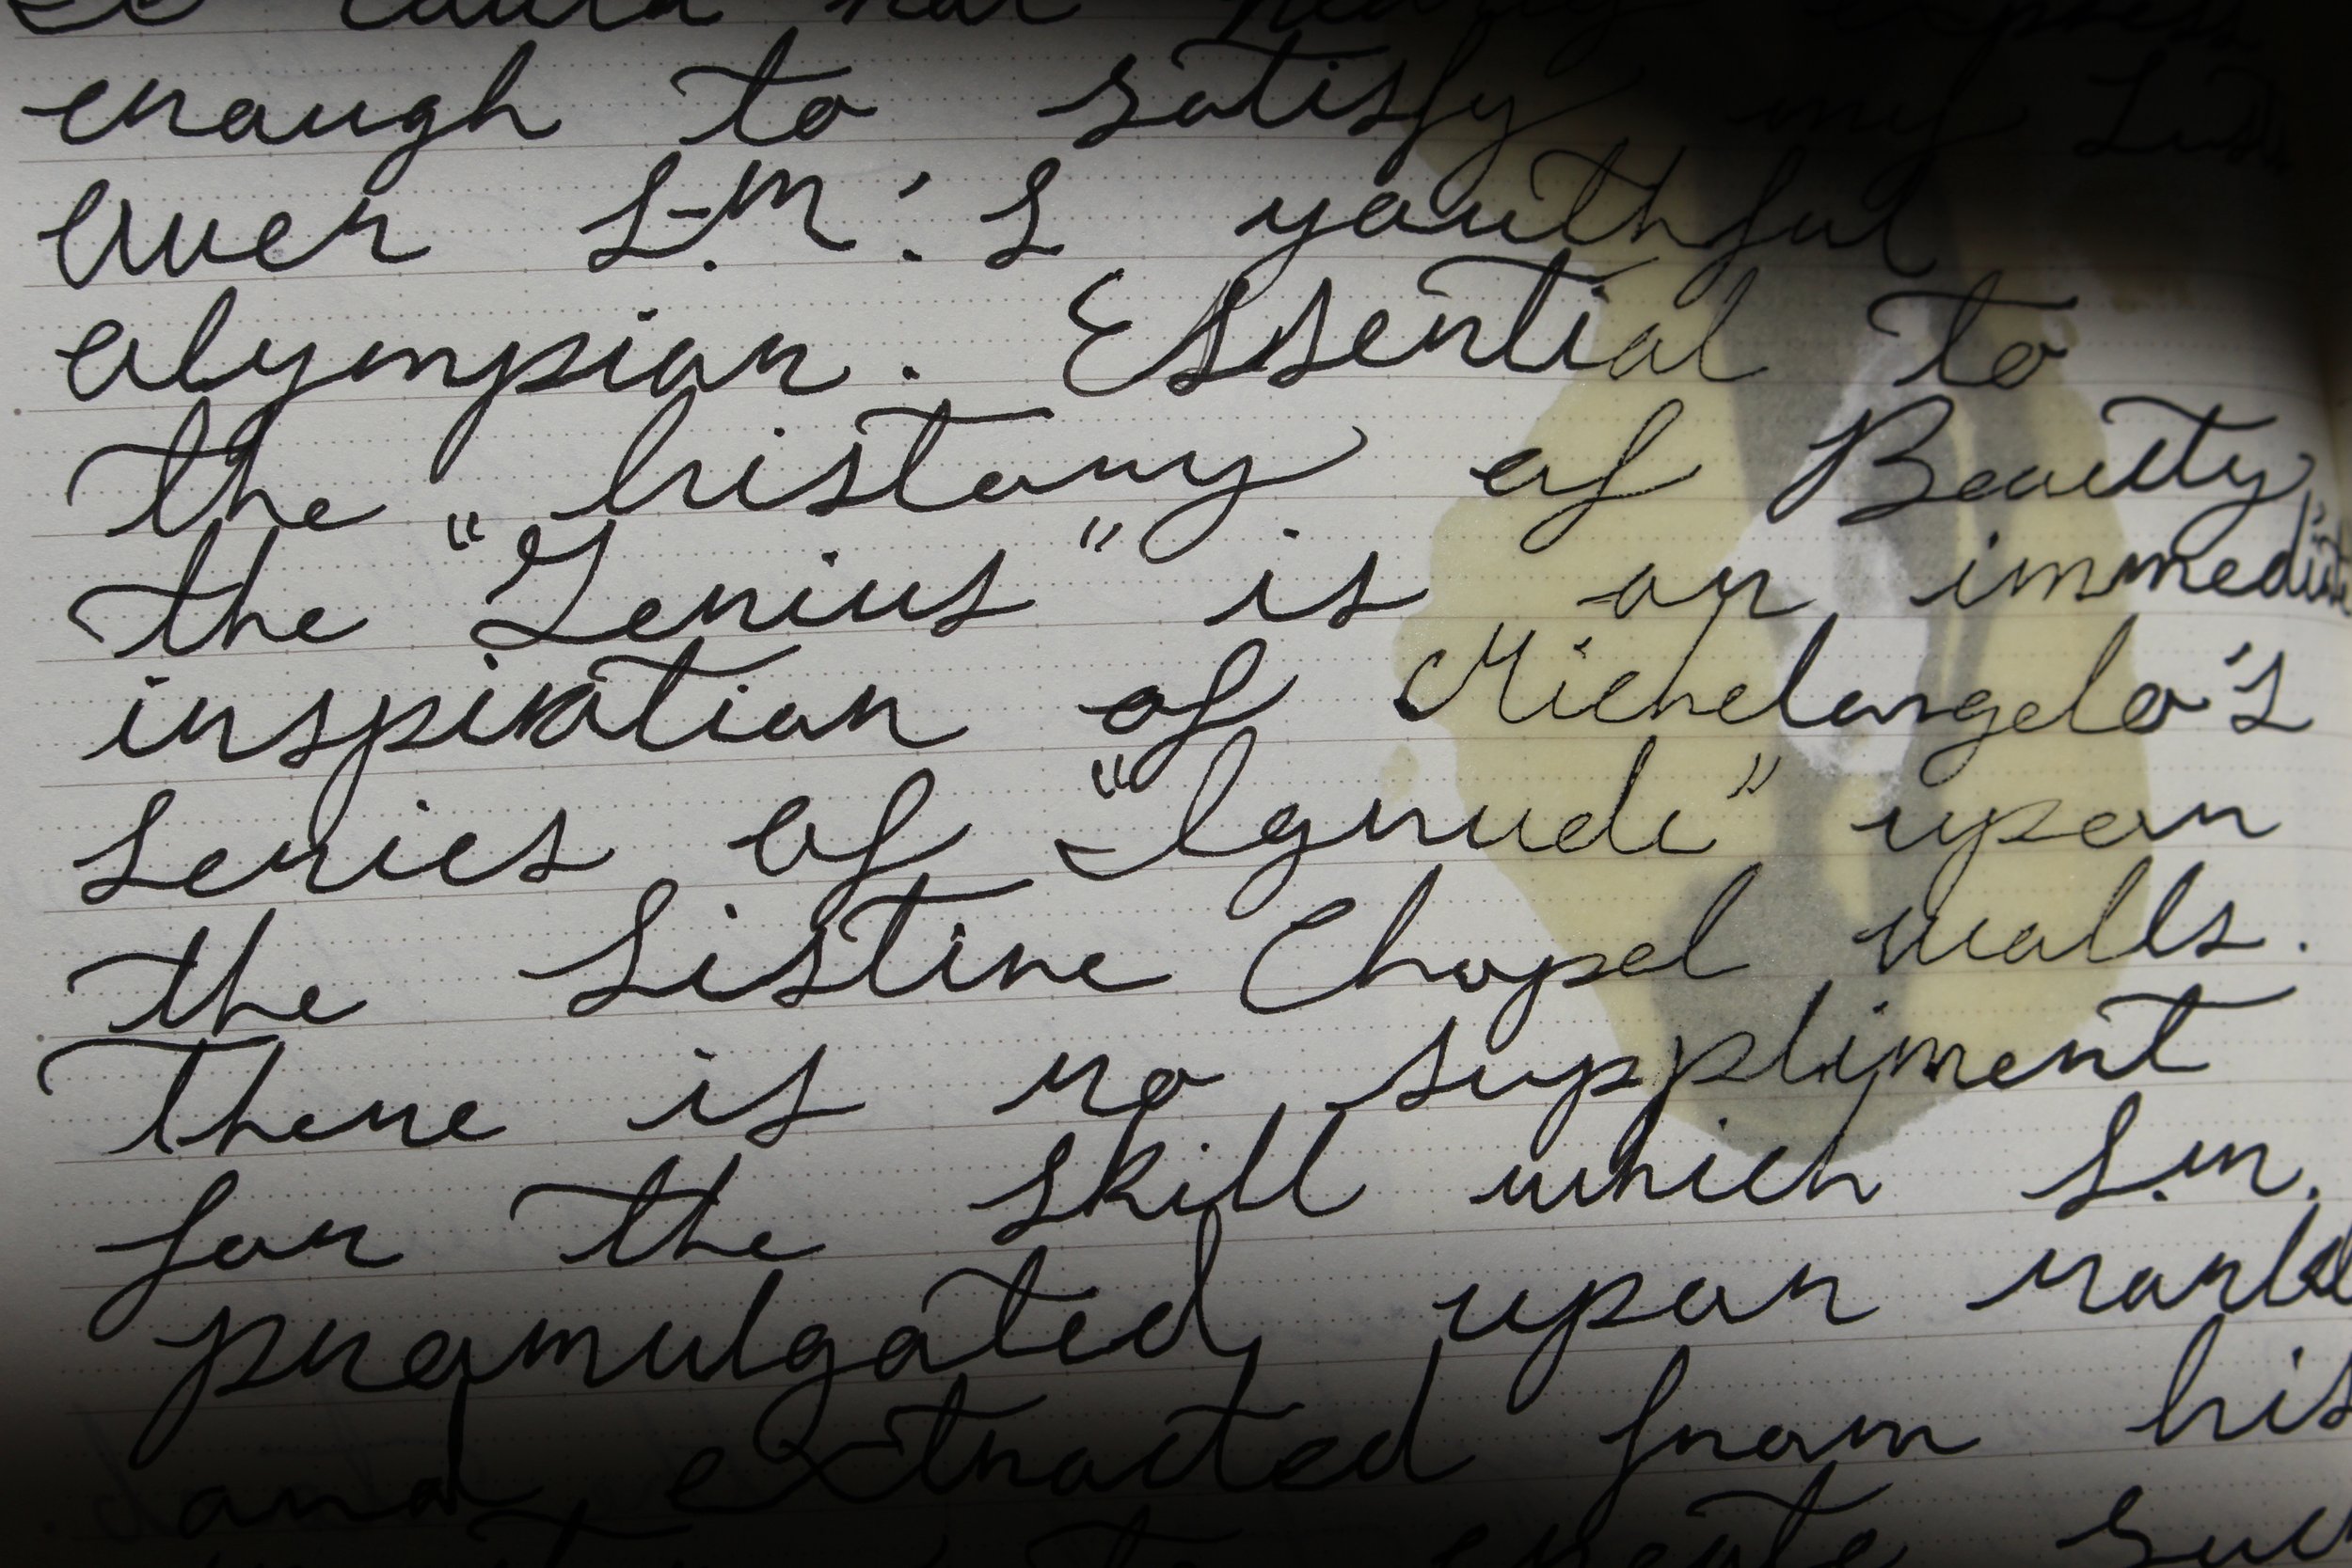 I could not nearly express
enough to satisfy my Lust
over S.M.'s youthful
olympian. Essential to
the history of Beauty,
the "Genius" is an immediate
inspiration of Michelangelo's
series of "Ignudi" upon
the Sistine Chapel walls.
There is no suppliment
for the skill which S.M.
promulgated upon marble
and extracted from his
to create such